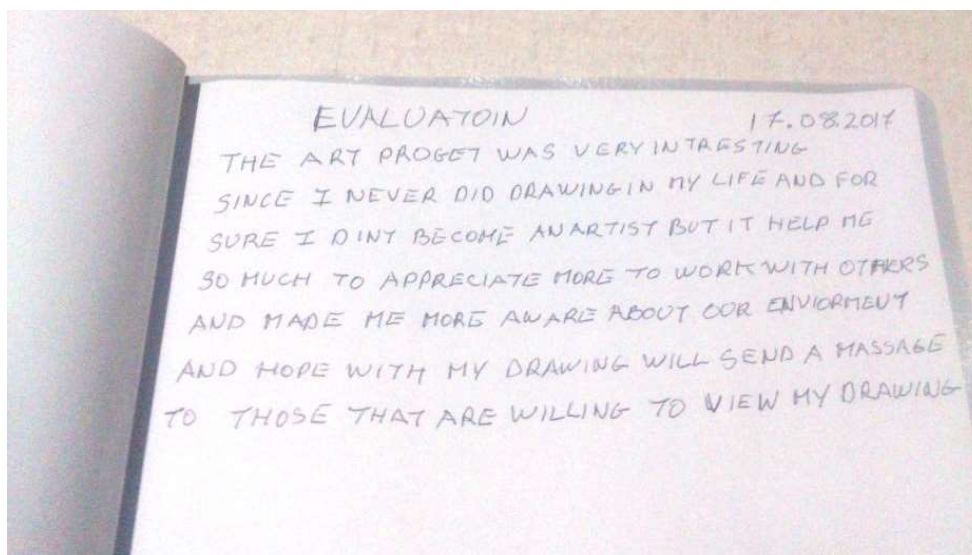 EVALUATOIN 17.08.2017
THE ART PROGET WAS VERY INTRESTING
SINCE I NEVER DID DRAWING IN MY LIFE AND FOR
SURE I DINT BECOME AN ARTIST BUT IT HELP ME
SO MUCH TO APPRECIATE MORE TO WORK WITH OTHERS
AND MADE ME MORE AWARE ABOUT OUR ENVIORMENT
AND HOPE WITH MY DRAWING WILL SEND A MASSAGE
TO THOSE THAT ARE WILLING TO VIEW MY DRAWING